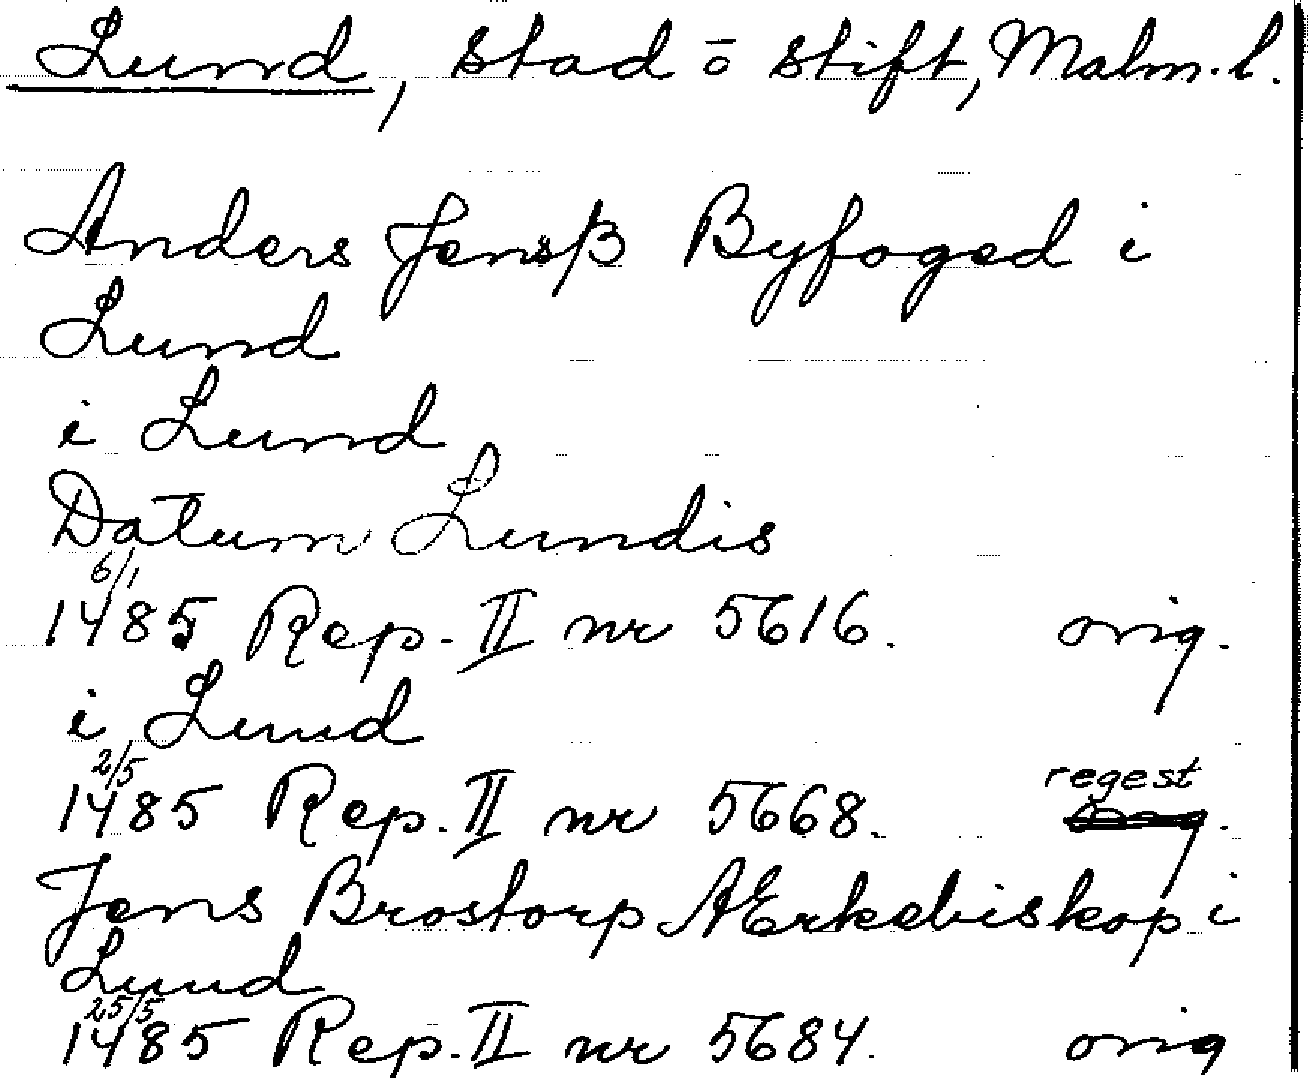 Lund, stad ō stift, Malm. l.
Anders Jensβ Byfoged i
Lund
i Lund
Datum Lundis
6/1
1485 Rep. II nr 5616. orig.
i Lund
2/5 regest
1485 Rep. II nr 5668. orig.
Jens Brostorp Ærkebiskop i
Lund
25/5
1485 Rep. II nr 5684. orig